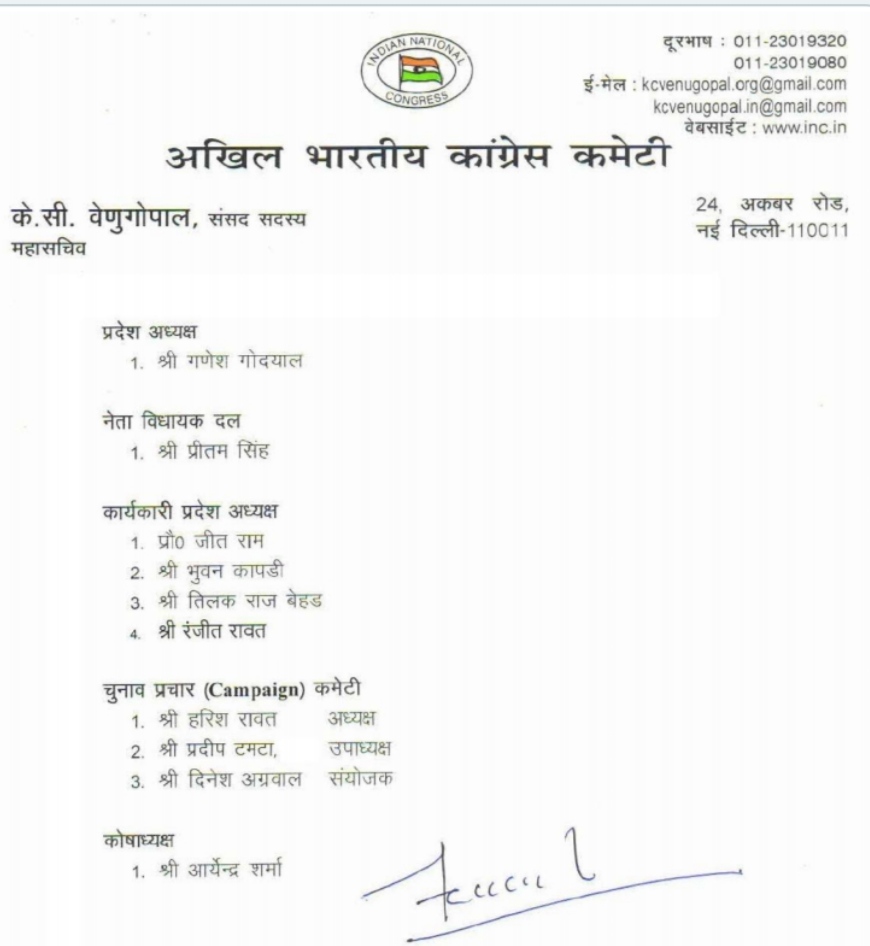 INDIAN NATIONAL
CONGRESS
दूरभाष : 011-23019320
011-23019080
ई-मेल : kcvenugopal.org@gmail.com
kcvenugopal.in@gmail.com
वेबसाईट : www.inc.in
अखिल भारतीय कांग्रेस कमेटी
के.सी. वेणुगोपाल, संसद सदस्य
महासचिव
24, अकबर रोड,
नई दिल्ली-110011
प्रदेश अध्यक्ष
1. श्री गणेश गोदयाल
नेता विधायक दल
1. श्री प्रीतम सिंह
कार्यकारी प्रदेश अध्यक्ष
1. प्रौ0 जीत राम
2. श्री भुवन कापडी
3. श्री तिलक राज बेहड
4. श्री रंजीत रावत
चुनाव प्रचार (Campaign) कमेटी
1. श्री हरिश रावत अध्यक्ष
2. श्री प्रदीप टमटा, उपाध्यक्ष
3. श्री दिनेश अग्रवाल संयोजक
कोषाध्यक्ष
1. श्री आर्येन्द्र शर्मा